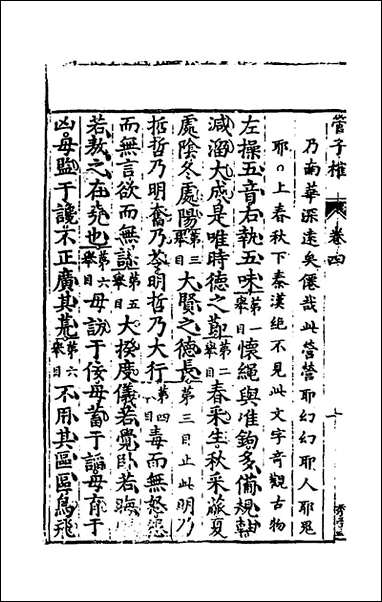 管子榷 卷四 十
乃南華深遠矣僊哉此營營耶幻幻耶人耶鬼
耶○上春秋下秦漢絕不見此文字奇觀古物
左操五音右執五味舉目第一懷繩與准鉤多備規軸
減溜大成是唯時德之節舉目第二春采生秋采蓏夏
處陰冬處陽舉目第三大賢之德長第三目止此明乃
哲哲乃明奮乃苓明哲乃大行舉目第四毒而無怒怨
而無言欲而無謀舉目第五大揆度儀若覺卧若晦明
若敖之在堯也舉目第六毋訪于佞毋蓄于謟毋育于
凶毋監于讒不正廣其荒舉目第六不用其區區鳥飛